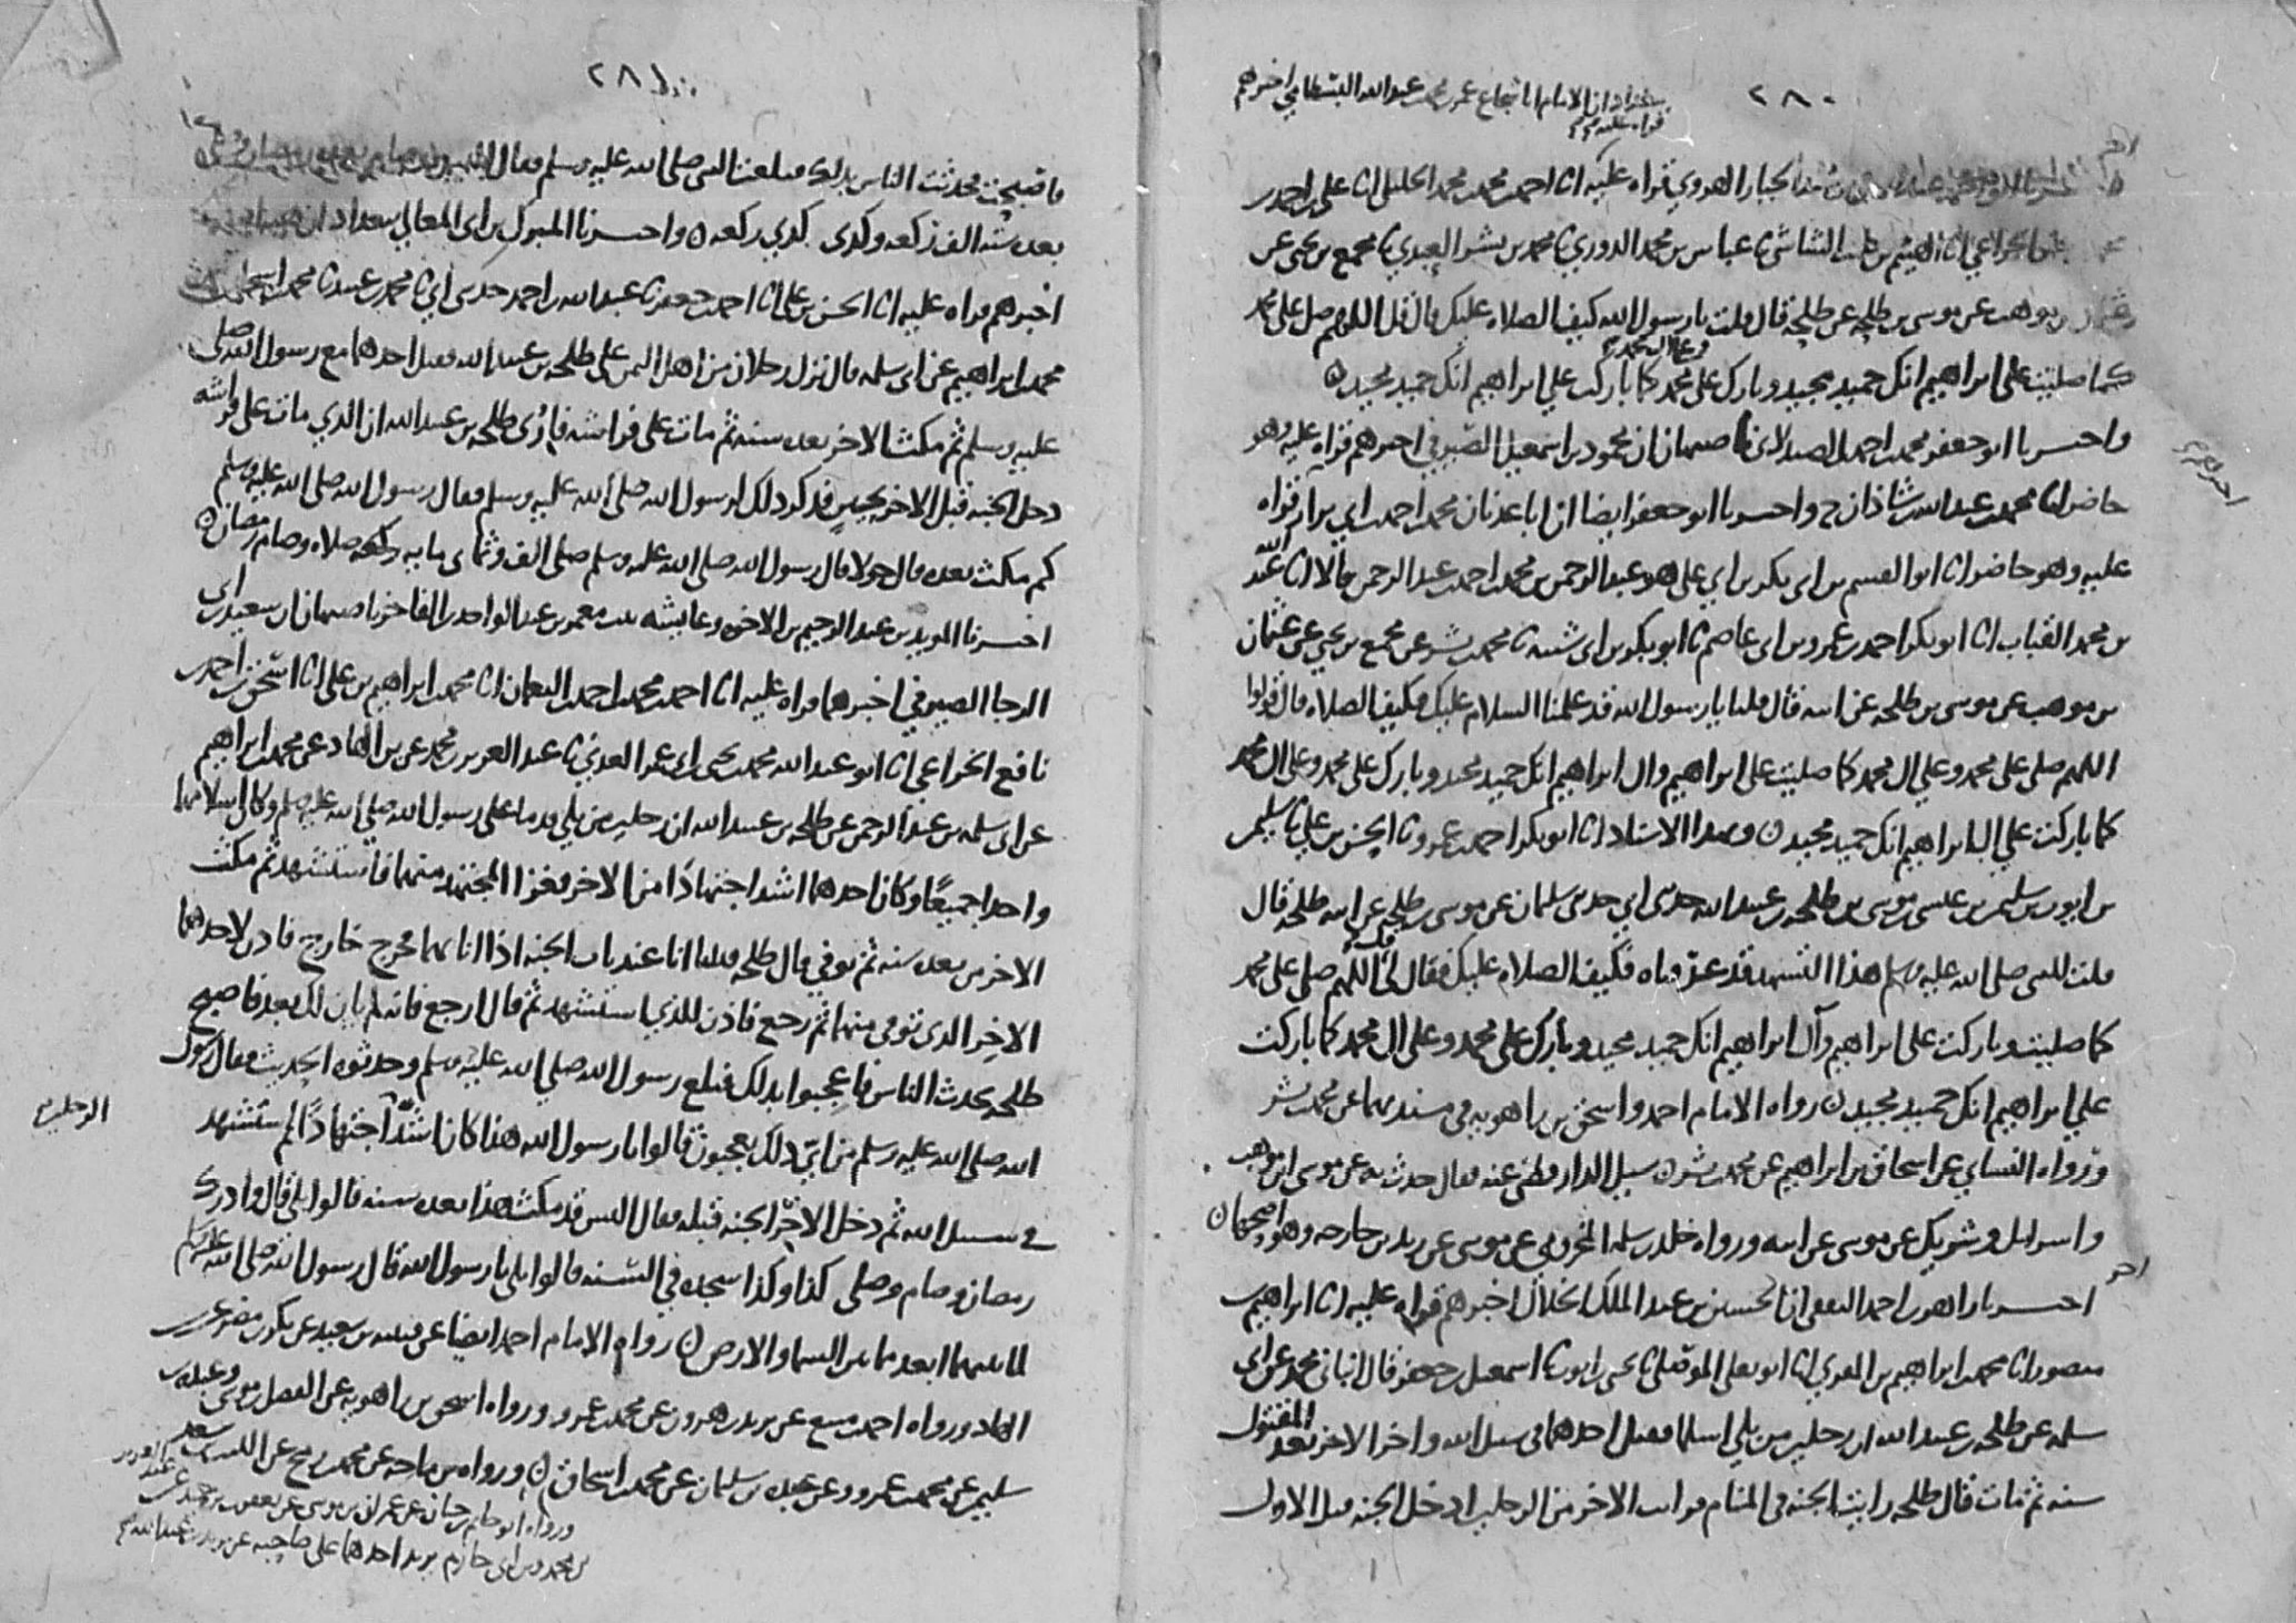 ٢٨٠
الامام ابا شجاع عمر بن محمد بن عبد الله البسطامي اخبرهم
قراه عليه
عبد الجبار الهروي قراه عليه انا احمد بن محمد بن محمد الخليلي انا علي بن احمد بن
الخزاعي انا الهيثم بن كليب الشاشي ثنا عباس بن محمد الدوري ثنا محمد بن بشر العبدي ثنا مجمع بن يحيى عن
بن موهب عن موسى بن طلحه عن طلحه قال قلت يا رسول الله كيف الصلاه عليك قال قل اللهم صل على محمد
وعلى ال محمد
كما صليت على ابراهيم انك حميد مجيد وبارك على محمد كما باركت علي ابراهيم انك حميد مجيد ه
واخبرنا ابو جعفر محمد بن احمد الصيدلاني باصبهان ان محمود بن اسمعيل الصيرفي اخبرهم قراه عليه وهو
حاضر انا محمد بن عبد الله بن شاذان ح واخبرنا ابو جعفر ايضا ان ابا عدنان محمد بن احمد بن ابي نزار قراه
عليه وهو حاضر انا ابو القسم بن ابي بكر بن ابي علي هو عبد الرحمن بن محمد بن احمد بن عبد الرحمن قالا انا عبد الله
بن محمد القباب انا ابو بكر احمد بن عمرو بن ابي عاصم ثنا ابو بكر بن ابي شيبه ثنا محمد بن بشر عن مجمع بن يحيى عن عثمان
بن موهب عن موسى بن طلحه عن ابيه قال قلنا يا رسول الله قد علمنا السلام عليك فكيف الصلاه قال قولوا
اللهم صلي على محمد وعلي ال محمد كما صليت على ابراهيم وال ابراهيم انك حميد مجيد وبارك على محمد وعلى ال محمد
كما باركت علي ال ابراهيم انك حميد مجيد ن وبهذا الاسناد انا ابو بكر احمد بن عمرو ثنا الحسن بن علي ثنا سليمن
بن ايوب بن سليمن بن عيسى بن موسى بن طلحه بن عبيد الله حدثني ابي حدثني سلمان عن موسى بن طلحه عن ابيه طلحه قال
قلت للنبي صلى الله عليه وسلم هذا التشهد قد عرفناه فكيف الصلاه عليك فقال قل اللهم صلي على محمد
كما صليت وباركت على ابراهيم وآل ابراهيم انك حميد مجيد وبارك على محمد وعلى ال محمد كما باركت
علي ابراهيم انك حميد مجيد ن رواه الامام احمد واسحق بن راهويه في مسنديهما عن محمد بن بشر
ورواه النساي عن اسحاق بن ابراهيم عن محمد بن بشر ن سيل الدارقطني عنه فقال حدث به عن موسى ابن موهب
واسرايل وشريك عن موسى عن ابيه ورواه خلد بن سلمه المخزومي عن موسى عن زيد بن خارجه وهو صحيحان
اخبرنا زاهر بن احمد الثقفي ان الحسين بن عبد الملك الخلال اخبرهم قراه عليه انا ابراهيم بن
منصور انا محمد بن ابراهيم بن المقري انا ابو يعلى الموصلي ثنا يحيى بن ايوب ثنا اسمعيل بن جعفر قال انباني محمد عن ابي
سلمه عن طلحه بن عبيد الله ان رجلين من بلي اسلما فقتل احدهما في سبيل الله واخر الاخر بعد المقتول
سنه ثم مات قال طلحه رايت الجنه في المنام فرايت الاخر من الرجلين ادخل الجنه قبل الاول
٢٨١
فاصبحت فحدثت الناس بذلك فبلغت النبي صلى الله عليه وسلم فقال
بعده سته الف ركعه وكذى كذي ركعه ه واخبرنا المبارك بن ابي المعالي ببغداد ان
اخبرهم قراه عليه انا الحسن بن علي انا احمد بن جعفر ثنا عبد الله بن احمد حدثني ابي ثنا محمد بن عبيد ثنا محمد بن اسحاق عن
محمد بن ابراهيم عن ابي سلمه قال نزل رجلان من اهل اليمن على طلحه بن عبيد الله فقتل احدهما مع رسول الله صلى
عليه وسلم ثم مكث الاخر بعده سنه ثم مات على فراشه فاري طلحه بن عبيد الله ان الذي مات على فراشه
دخل الجنه قبل الاخر بحين فذكر ذلك لرسول الله صلى الله عليه وسلم فقال رسول الله صلى الله عليه وسلم
كم مكث بعده قال حولا قال رسول الله صلى الله عليه وسلم صلى الف وثمان مايه ركعه صلاه وصام رمضان ه
اخبرنا المويد بن عبد الرحيم بن الاخوه وعايشه بنت معمر بن عبد الواحد بن الفاخر باصبهان ان سعيد بن ابي
الرجا الصيرفي اخبرهما قراه عليه انا احمد بن محمد بن احمد بن النعمان انا محمد بن ابراهيم بن علي انا اسحق بن احمد بن
نافع الخزاعي انا ابو عبد الله محمد بن يحيى بن ابي عمر العدني ثنا عبد العزيز بن محمد عن بن الهاد عن محمد بن ابراهيم
عن ابي سلمه بن عبد الرحمن عن طلحه بن عبيد الله ان رجلين من بلي قدما على رسول الله صلى الله عليه وسلم وكان اسلامهما
واحدا جميعا وكان احدهما اشد اجتهادا من الاخر فغزا المجتهد منهما فاستشهد ثم مكث
الاخر من بعده سنه ثم توفي قال طلحه فبينا انا عند باب الجنه اذا انا بهما فخرج خارج فاذن لاحدهما
الاخر الذي توفي منهما ثم رجع فاذن للذي استشهد ثم قال ارجع فانه لم يان لك بعد فاصبح
طلحه يحدث الناس فاعجبوا بذلك فبلغ رسول الله صلى الله عليه وسلم وحدثوه الحديث فقال رسول
الله صلى الله عليه وسلم من اي ذلك تعجبون قالوا يا رسول الله هذا كان اشد اجتهادا ثم استشهد
الرجلين
في سبيل الله ثم دخل الاخر الجنه قبله فقال اليس قد مكث هذا بعده سنه قالوا بلى قال وادرك
رمضان وصام وصلى كذا وكذا سجده في السنه قالوا بلى يا رسول الله قال رسول الله صلى الله عليه وسلم
لما بينهما ابعد مما بين السما والارض ن رواه الامام احمد ايضا عن قتيبه بن سعيد عن بكر بن مضر عن
الهاد ورواه احمد بن منيع عن يزيد بن هرون عن محمد بن عمرو ورواه اسحق بن راهويه عن الفضل بن موسى وعبده بن
سليمن عن محمد بن عمرو وعن عبده بن سلمان عن محمد بن اسحاق ن ورواه بن ماجه عن محمد بن رمح عن الليث بن سعد
ورواه ابو حاتم بن حبان عن عمران بن موسى عن
بن محمد بن ابي حازم يزيد احدهما على صاحبه عن يزيد بن عبد الله